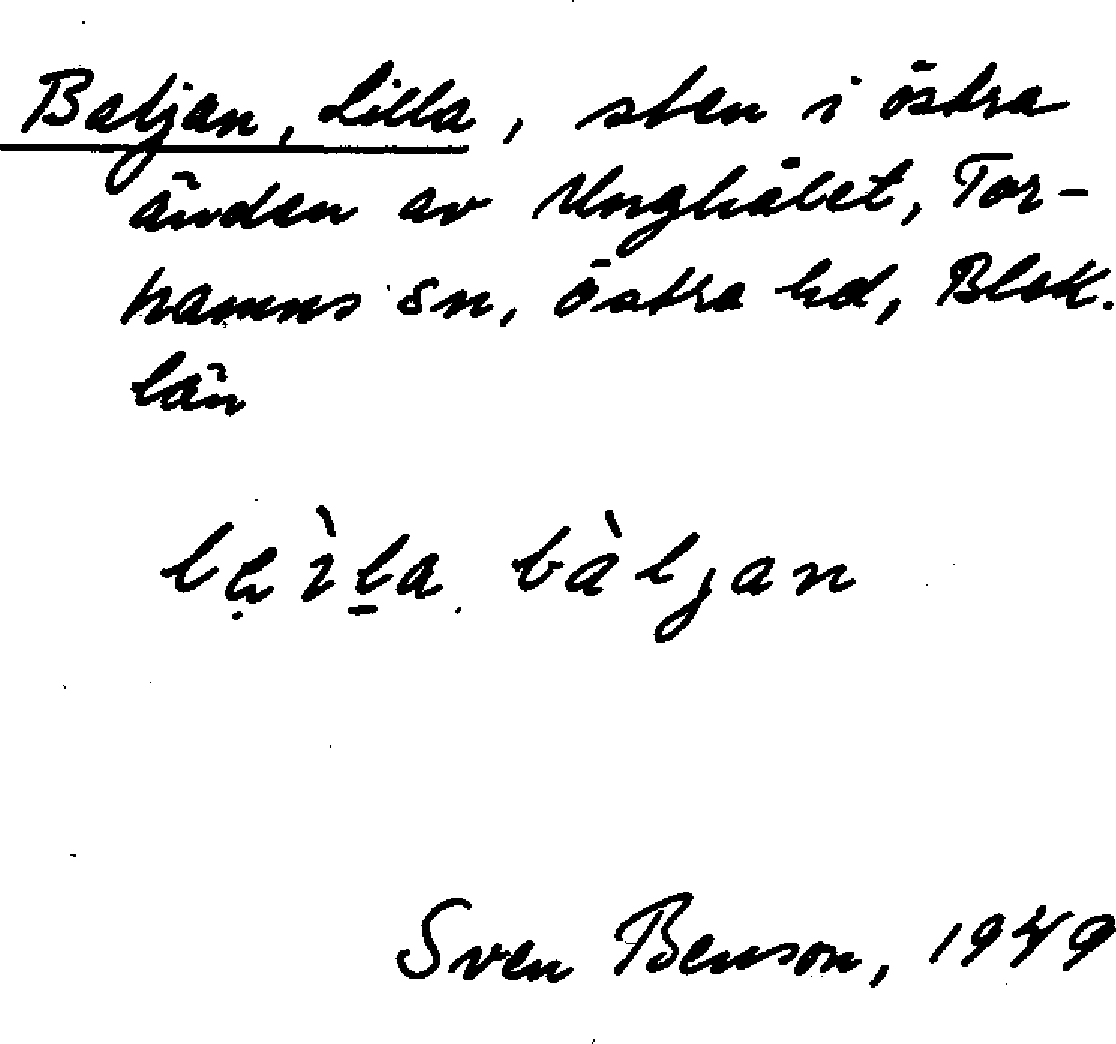 Baljan, Lilla, sten i östra
änden av Unghålet, Tor-
hamns sn, östra hd, Blek.
län
bàljan
Sven Benson, 1949